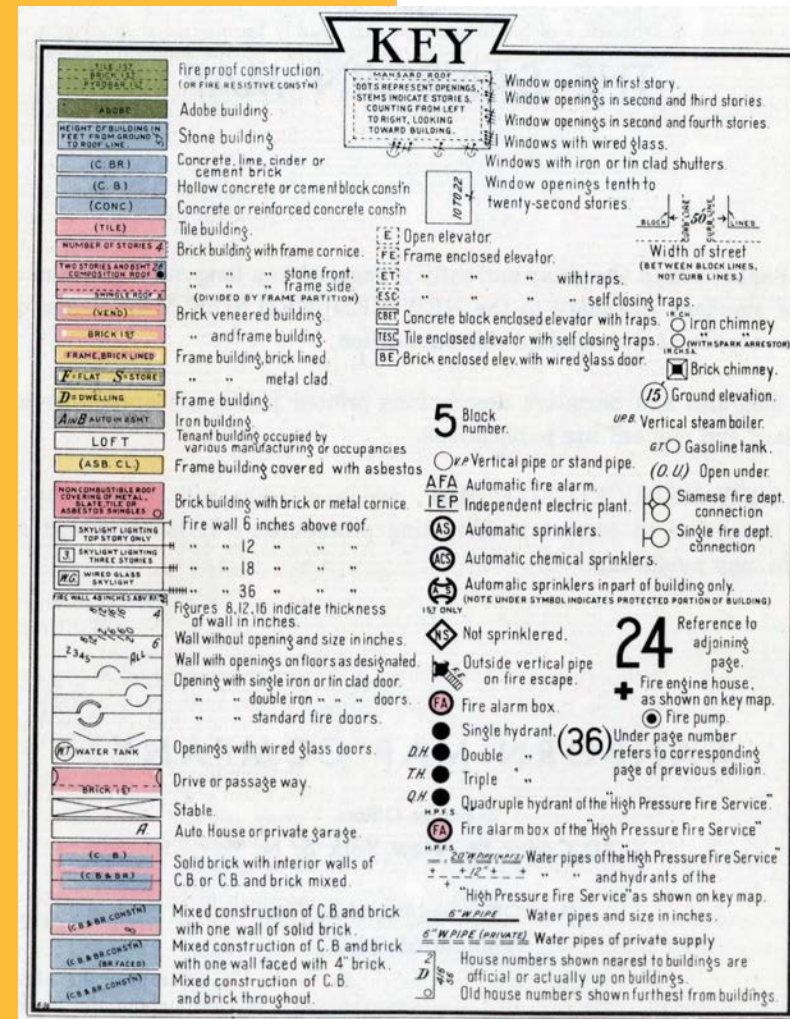 KEY
TILE 1ST
BRICK 1ST
PYROBAR 1ST
Fire proof construction.
(OR FIRE RESISTIVE CONST'N)
ADOBE
Adobe building.
HEIGHT OF BUILDING IN
FEET FROM GROUND
TO ROOF LINE
Stone building
(C. BR.)
Concrete, lime, cinder or
cement brick
(C. B.)
Hollow concrete or cement block const'n
(CONC)
Concrete or reinforced concrete const'n
(TILE)
Tile building.
NUMBER OF STORIES 4
Brick building with frame cornice.
TWO STORIES AND BSMT 2B
COMPOSITION ROOF
" " " stone front.
" " " frame side.
SHINGLE ROOF X
(DIVIDED BY FRAME PARTITION)
(VEND)
Brick veneered building.
BRICK 1ST
" and frame building.
FRAME, BRICK LINED
Frame building, brick lined.
F=FLAT S=STORE
" " metal clad.
D=DWELLING
Frame building.
A IN B AUTO IN BSMT
Iron building.
LOFT
Tenant building occupied by
various manufacturing or occupancies
(ASB. CL.)
Frame building covered with asbestos
NON COMBUSTIBLE ROOF
COVERING OF METAL,
SLATE, TILE OR
ASBESTOS SHINGLES
Brick building with brick or metal cornice.
SKYLIGHT LIGHTING
TOP STORY ONLY
Fire wall 6 inches above roof.
3 SKYLIGHT LIGHTING
THREE STORIES
" " 12 " " "
W.G. WIRED GLASS
SKYLIGHT
" " 18 " " "
" " 36 " " "
FIRE WALL 48 INCHES ABV. RF.
Figures 8, 12, 16 indicate thickness
of wall in inches.
4
6
Wall without opening and size in inches.
2345 ALL
Wall with openings on floors as designated.
Opening with single iron or tin clad door.
" " double iron " " " doors.
" " standard fire doors.
W.T. WATER TANK
Openings with wired glass doors.
BRICK 1ST
Drive or passage way.
Stable.
A.
Auto House or private garage.
(C. B.)
(C B & BR.)
Solid brick with interior walls of
C.B. or C.B. and brick mixed.
(C.B. & BR. CONST'N)
8
Mixed construction of C.B. and brick
with one wall of solid brick.
(C.B. & BR. CONST'N)
(BR FACED)
Mixed construction of C.B. and brick
with one wall faced with 4" brick.
(C.B. & BR. CONST'N)
Mixed construction of C.B.
and brick throughout.
MANSARD ROOF
DOTS REPRESENT OPENINGS,
STEMS INDICATE STORIES,
COUNTING FROM LEFT
TO RIGHT, LOOKING
TOWARD BUILDING.
Window opening in first story.
Window openings in second and third stories.
Window openings in second and fourth stories.
Windows with wired glass.
Windows with iron or tin clad shutters.
10 TO 22
Window openings tenth to
twenty-second stories.
BLOCK
CURB LINE
50'
CURB LINE
LINES
Width of street
(BETWEEN BLOCK LINES,
NOT CURB LINES.)
E Open elevator.
FE Frame enclosed elevator.
ET " " " with traps.
ESC " " " self closing traps.
CBET Concrete block enclosed elevator with traps.
TESC Tile enclosed elevator with self closing traps.
BE Brick enclosed elev. with wired glass door.
IR. CH.
Iron chimney
" "
(WITH SPARK ARRESTOR)
IR.CH.S.A.
Brick chimney.
15 Ground elevation.
5 Block
number.
U.P.B. Vertical steam boiler.
V.P. Vertical pipe or stand pipe.
G.T. Gasoline tank.
AFA Automatic fire alarm.
(O.U.) Open under.
IEP Independent electric plant.
Siamese fire dept.
connection
AS Automatic sprinklers.
Single fire dept.
connection
ACS Automatic chemical sprinklers.
AS Automatic sprinklers in part of building only.
(NOTE UNDER SYMBOL INDICATES PROTECTED PORTION OF BUILDING)
1ST ONLY
NS Not sprinklered.
F.E.
Outside vertical pipe
on fire escape.
FA Fire alarm box.
24 Reference to
adjoining
page.
Fire engine house,
as shown on key map.
Fire pump.
Single hydrant.
D.H. Double "
T.H. Triple "
(36) Under page number
refers to corresponding
page of previous edition.
Q.H. Quadruple hydrant of the "High Pressure Fire Service".
H.P.F.S.
FA Fire alarm box of the "High Pressure Fire Service"
H.P.F.S.
20" W. PIPE (H.P.F.S.) Water pipes of the "High Pressure Fire Service"
+ 12" + + " " and hydrants of the
"High Pressure Fire Service" as shown on key map.
6" W. PIPE Water pipes and size in inches.
6" W. PIPE (PRIVATE) Water pipes of private supply
2
D
House numbers shown nearest to buildings are
official or actually up on buildings.
Old house numbers shown furthest from buildings.